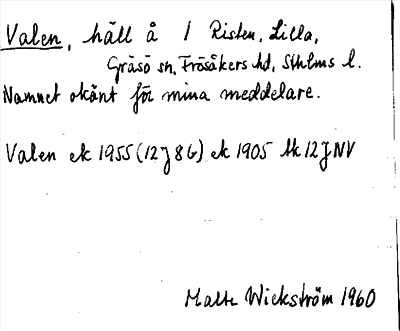 Valen, häll å 1 Risten, Lilla,
Gräsö sn, Frösåkers hd, Sthlms l.
Namnet okänt för mina meddelare.
Valen ek 1955 (12J 8G) ek 1905 bk 12J NV
Malte Wickström 1960